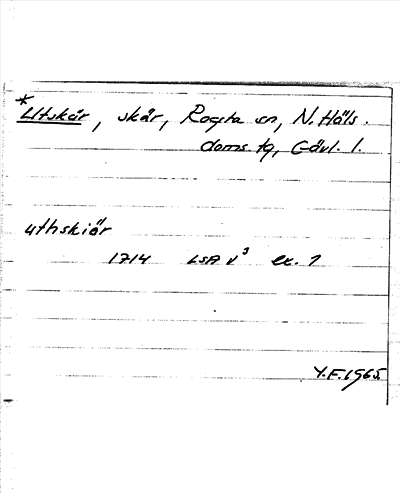 *Utskär, skär, Rogsta sn, N. Häls.
doms tg, Gävl. l.
uthskiär
1714 LSA V³ ex. 1
Y.F. 1965